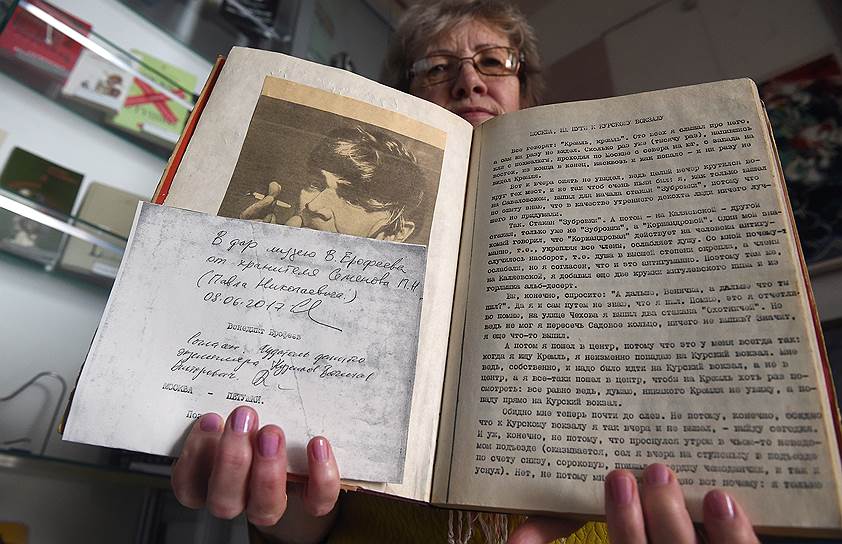 В дар музею В. Ерофеева
от хранителя Семенова П.Н.
(Павла Николаевича)
08.06.2017
Венедикт Ерофеев
МОСКВА - ПЕТУШКИ.
МОСКВА. НА ПУТИ К КУРСКОМУ ВОКЗАЛУ
Все говорят: "Кремль, кремль". Ото всех я слышал про него,
а сам ни разу не видел. Сколько раз уже (тысячу раз), напившись
или с похмелья, проходил по Москве с севера на юг, с запада на
восток, из конца в конец, насквозь и как попало - и ни разу не
видел Кремля.
Вот и вчера опять не увидел, ведь целый вечер крутился во-
круг тех мест, и не так чтоб очень пьян был: я, как только вышел
на Савеловском, выпил для начала стакан "Зубровки", потому что
по опыту знаю, что в качестве утреннего декокта люди ничего луч-
шего не придумали.
Так. Стакан "Зубровки". А потом - на Каляевской - другой
стакан, только уже не "Зубровки", а "Кориандровой". Один мой зна-
комый говорил, что "Кориандровая" действует на человека антигу-
манно, т.е., укрепляя все члены, ослабляет душу. Со мной почему-то
случилось наоборот, т.е. душа в высшей степени окрепла, а члены
ослабели, но я согласен, что и это антигуманно. Поэтому там же,
на Каляевской, я добавил еще две кружки жигулевского пива и из
горлышка альб-десерт.
Вы, конечно, спросите: "А дальше, Веничка, а дальше что ты
пил?". Да я и сам путем не знаю, что я пил. Помню, это я отчетли-
во помню, на улице Чехова я выпил два стакана "Охотничей". Но
ведь не мог я пересечь Садовое кольцо, ничего не выпив? Значит,
я еще что-то выпил.
А потом я попал в центр, потому что это у меня всегда так:
когда я ищу Кремль, я неизменно попадаю на Курский вокзал. Мне
ведь, собственно, и надо было идти на Курский вокзал, а не в
центр, а я все-таки попал в центр, чтобы на Кремль хоть раз по-
смотреть: все равно ведь, думаю, никакого Кремля не увижу, а по-
паду прямо на Курский вокзал.
Обидно мне теперь почти до слез. Не потому, конечно, обидно
что к Курскому вокзалу я так вчера и не вышел, - выйду сегодня.
И уж, конечно, не потому, что проснулся утром в чьем-то неведо-
мом подъезде (оказывается, сел я вчера на ступеньку в подъезде
по счету снизу, сороковую, прижал к сердцу чемоданчик, и так и
уснул). Нет, не потому мне обидно вот почему: я только